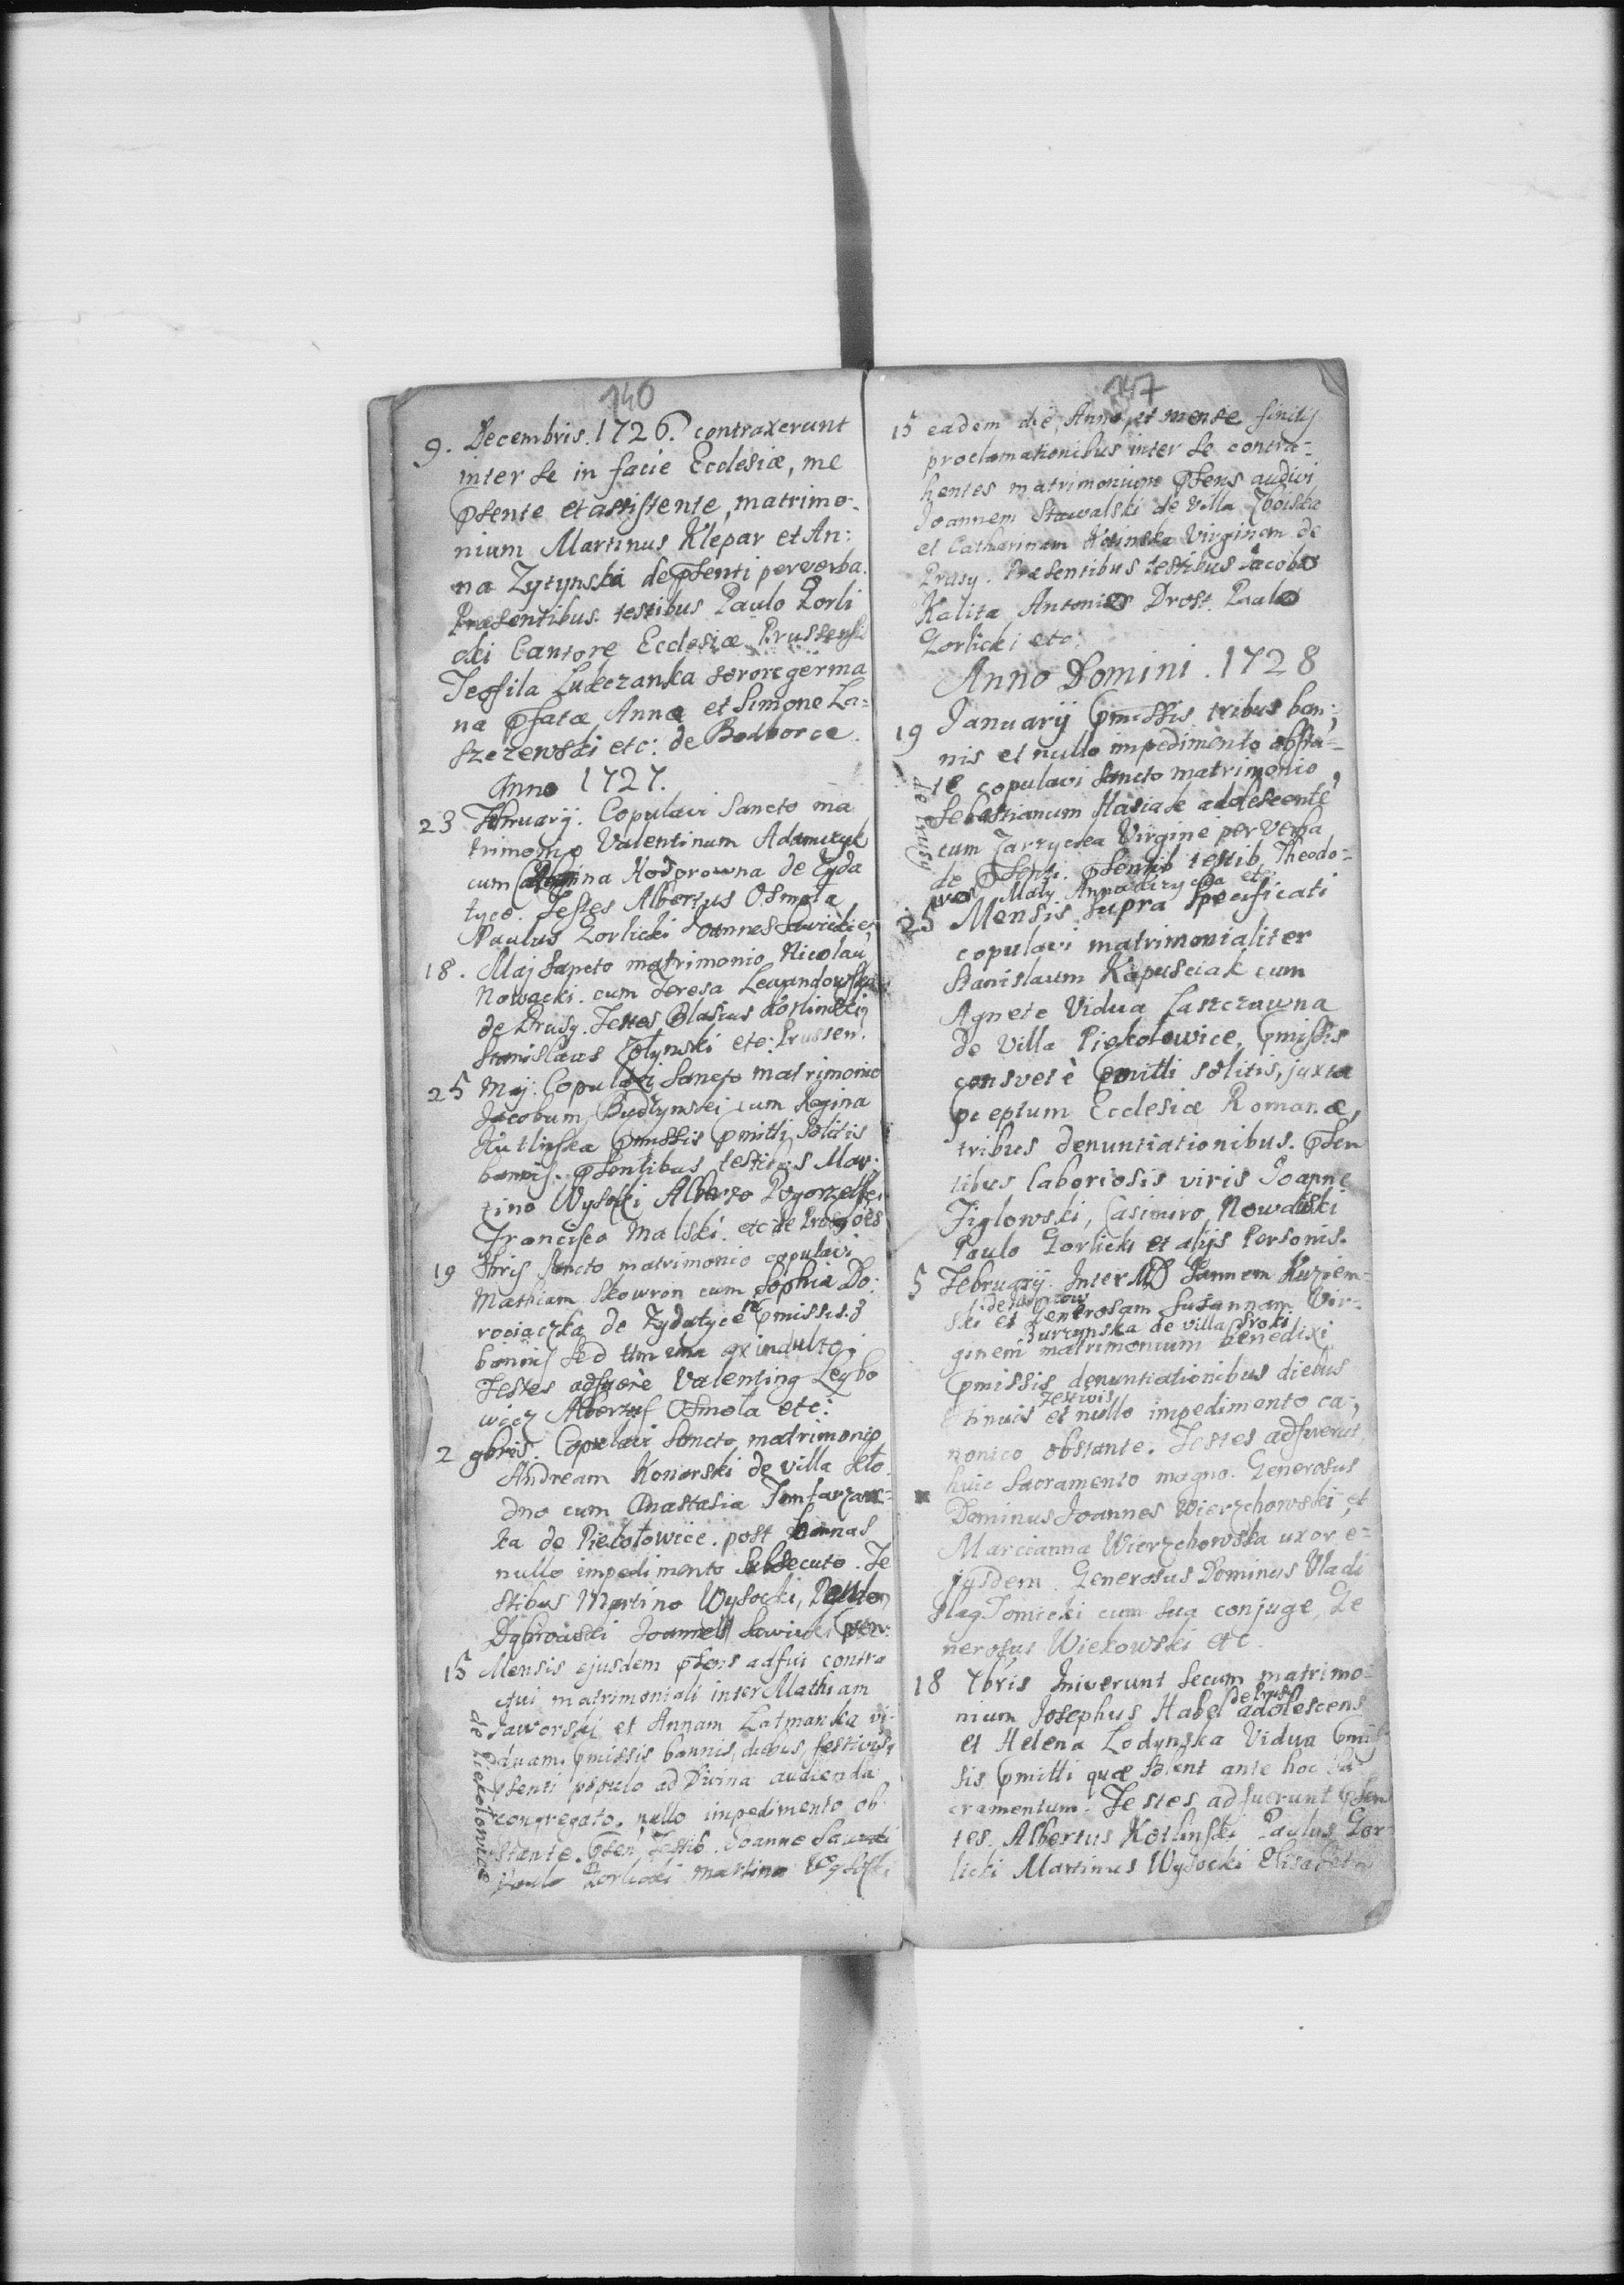 140
9. Decembris. 1726. contraxerunt
inter se in facie Ecclesiæ, me
pſente et assistente, matrimo-
nium Martinus Klepar et An:
na Zytynska de pſenti per verba.
Præsentibus testibus Paulo Gorli
cki Cantore Ecclesiæ Prussensis
Teofila Lukczanka sorore germa
na pfatæ Annæ et Simone La=
szczewski etc: de Podborce.
Anno 1727.
23 Februarij. Copulavi Sancto ma
trimonio Valentinum Adamczyk
cum Hodorowna de Zyda
tyce. Testes Albertus Osmola
Paulus Gorlicki Joannes Sawicki etc
18. Maj Sancto matrimonio Nicolau
Nowacki. cum Teresa Lewandowska
de Prusy. Testes Blasius Kotlinski
Stanislaus etc: Prussen.
25 Maj. Copulavi Sancto matrimonio
Jacobum Budzynski cum Regina
Kutlinska pmissis pmitti solitis
bannis. pſentibus testibus Mar:
tino Wysocki Alberto
Francisco Malski. etc de Prusy oes
19 8bris Sancto matrimonio copulavi
Mathiam Skowron cum Sophia Do:
rociaczka de Zydatyce pmissis 3
bannis sed ex indulto.
Testes adfuere Valenting Leybo
wicz Albertus Osmola etc:
2 9bris. Copulavi Sancto matrimonio
Andream Konarski de villa
dno cum Anastasia
ka de Piekolowice. post bannas
nullo impedimento subsecuto. Te
stibus Martino Wysocki, Paulo
Dąbrowski Joannes Sawicki
15 Mensis ejusdem pſens adfui contra
ctui matrimoniali inter Mathiam
Jaworski et Annam Latmanka vi-
duam, pmissis bannis, diebus festivis,
pſenti populo ad Divina audienda
congregato, nullo impedimento ob
stante. pſen Testib. Joanne Sawicki
Paulo Gorlicki Martino Wysocki
de Piekolowice
147
15 eadem die, Anno, et mense finitis
proclamationibus inter se contra-
hentes matrimonium pſens audivi
Joannem Stawalski de Villa Zboiska
et Catharinam Virginem de
Prusy. Præsentibus testibus Jacobo
Kalita Antonio Drost. Paulo
Gorlicki etc:
Anno Domini. 1728
19 Januarij pmissis tribus ban:
nis et nullo impedimento obsta=
te copulavi Sancto matrimonio
Sebastianum Hasiak adolescente,
cum Zarzycka Virgine per Verba
de pſenti. pſentib testib, Theodo-
Maly Anna etc
de Prusy
25 Mensis Supra Specificati
copulavi matrimonialiter
Stanislaum Kapusciak cum
Agnete Vidua Laszczawna
de Villa Piekolowice, pmissis
consvetè pmitti solitis, juxta
pceptum Ecclesiæ Romanæ,
tribus denuntiationibus. pſen
tibus laboriosis viris Joanne
Figlowski, Casimiro Nowalski
Paulo Gorlicki et alijs Personis.
5 Februarij. Inter MD Joannem Kuziem=
ski et Generosam Susannam Vir-
Jurzynska de villa Sroki
ginem matrimonium benedixi
pmissis denuntiationibus diebus
festivis
et nullo impedimento ca,
nonico obstante. Testes adfuerut,
huic Sacramento magno. Generosus
Dominus Joannes Wierzchowski et
Marcianna Wierzchowska uxor e-
jusdem. Generosus Dominus Vladi
slaq Tomicki cum sua conjuge, Ge
nerosus Wiekowski etc
18 7bris Iniverunt secum matrimo-
de Prusy
nium Josephus Habel adolescens
et Helena Lodynska Vidua pmis-
sis pmitti quæ solent ante hoc Sa
cramentum. Testes adfuerunt pſen
tes. Albertus Kotlinski Paulus Gor-
licki Martinus Wysocki Elisabeta